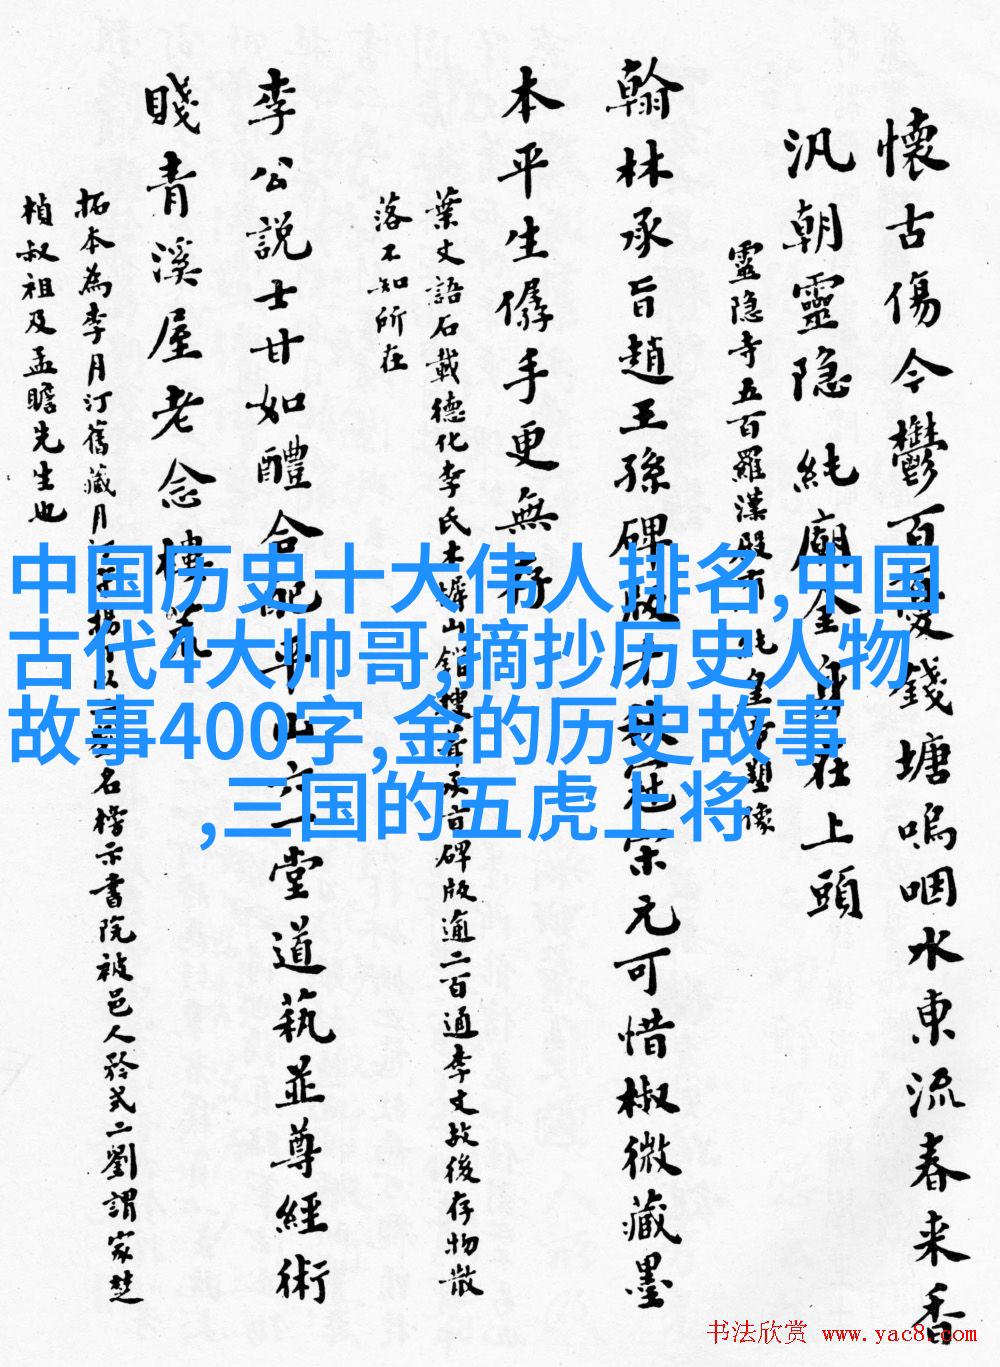 懷古傷今鬱百憂錢塘嗚咽水東流春来香
汎朝靈隐純廟金身在上頭
靈隐寺五百羅漢殿有純皇帝塑像
翰林承旨趙王孫碑版才冠宋元可惜椒微藏墨
本平生僝手更無存
葉文語石載德化李氏木犀山館搜葺承旨碑版逾二百通李文故後存物散
落不知所在
李公説士甘如醴合配平山六一堂道蓺並尊經術
賤青溪屋老念樓荒
拓本為李月汀舊藏月名榜示書院被邑人矜式二劉謂家楚
楨叔祖及孟瞻先生也
中国历史十大伟人排名,中国
古代4大帅哥,摘抄历史人物
故事400字,金的历史故事
,三国的五虎上将
书法欣赏 www.yac8.com